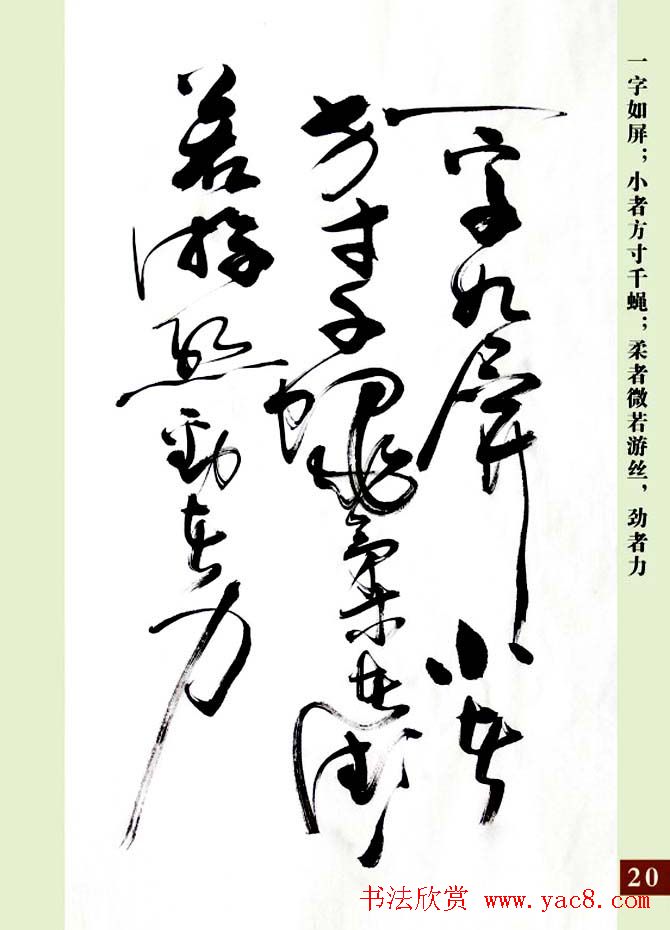 一字如屏小者
方寸千蝇柔者微
若游丝劲者力
一字如屏；小者方寸千蝇；柔者微若游丝，劲者力
20
书法欣赏 www.yac8.com